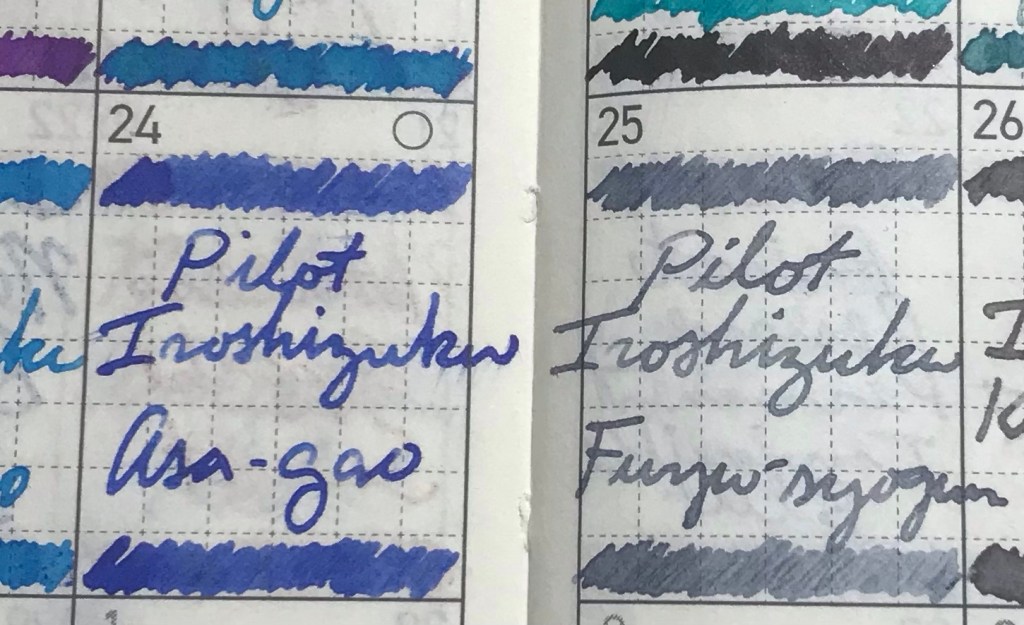 24
Pilot
Iroshizuku
Asa-gao
25
Pilot
Iroshizuku
Fuyu-syogun
26
ku
o
I
k